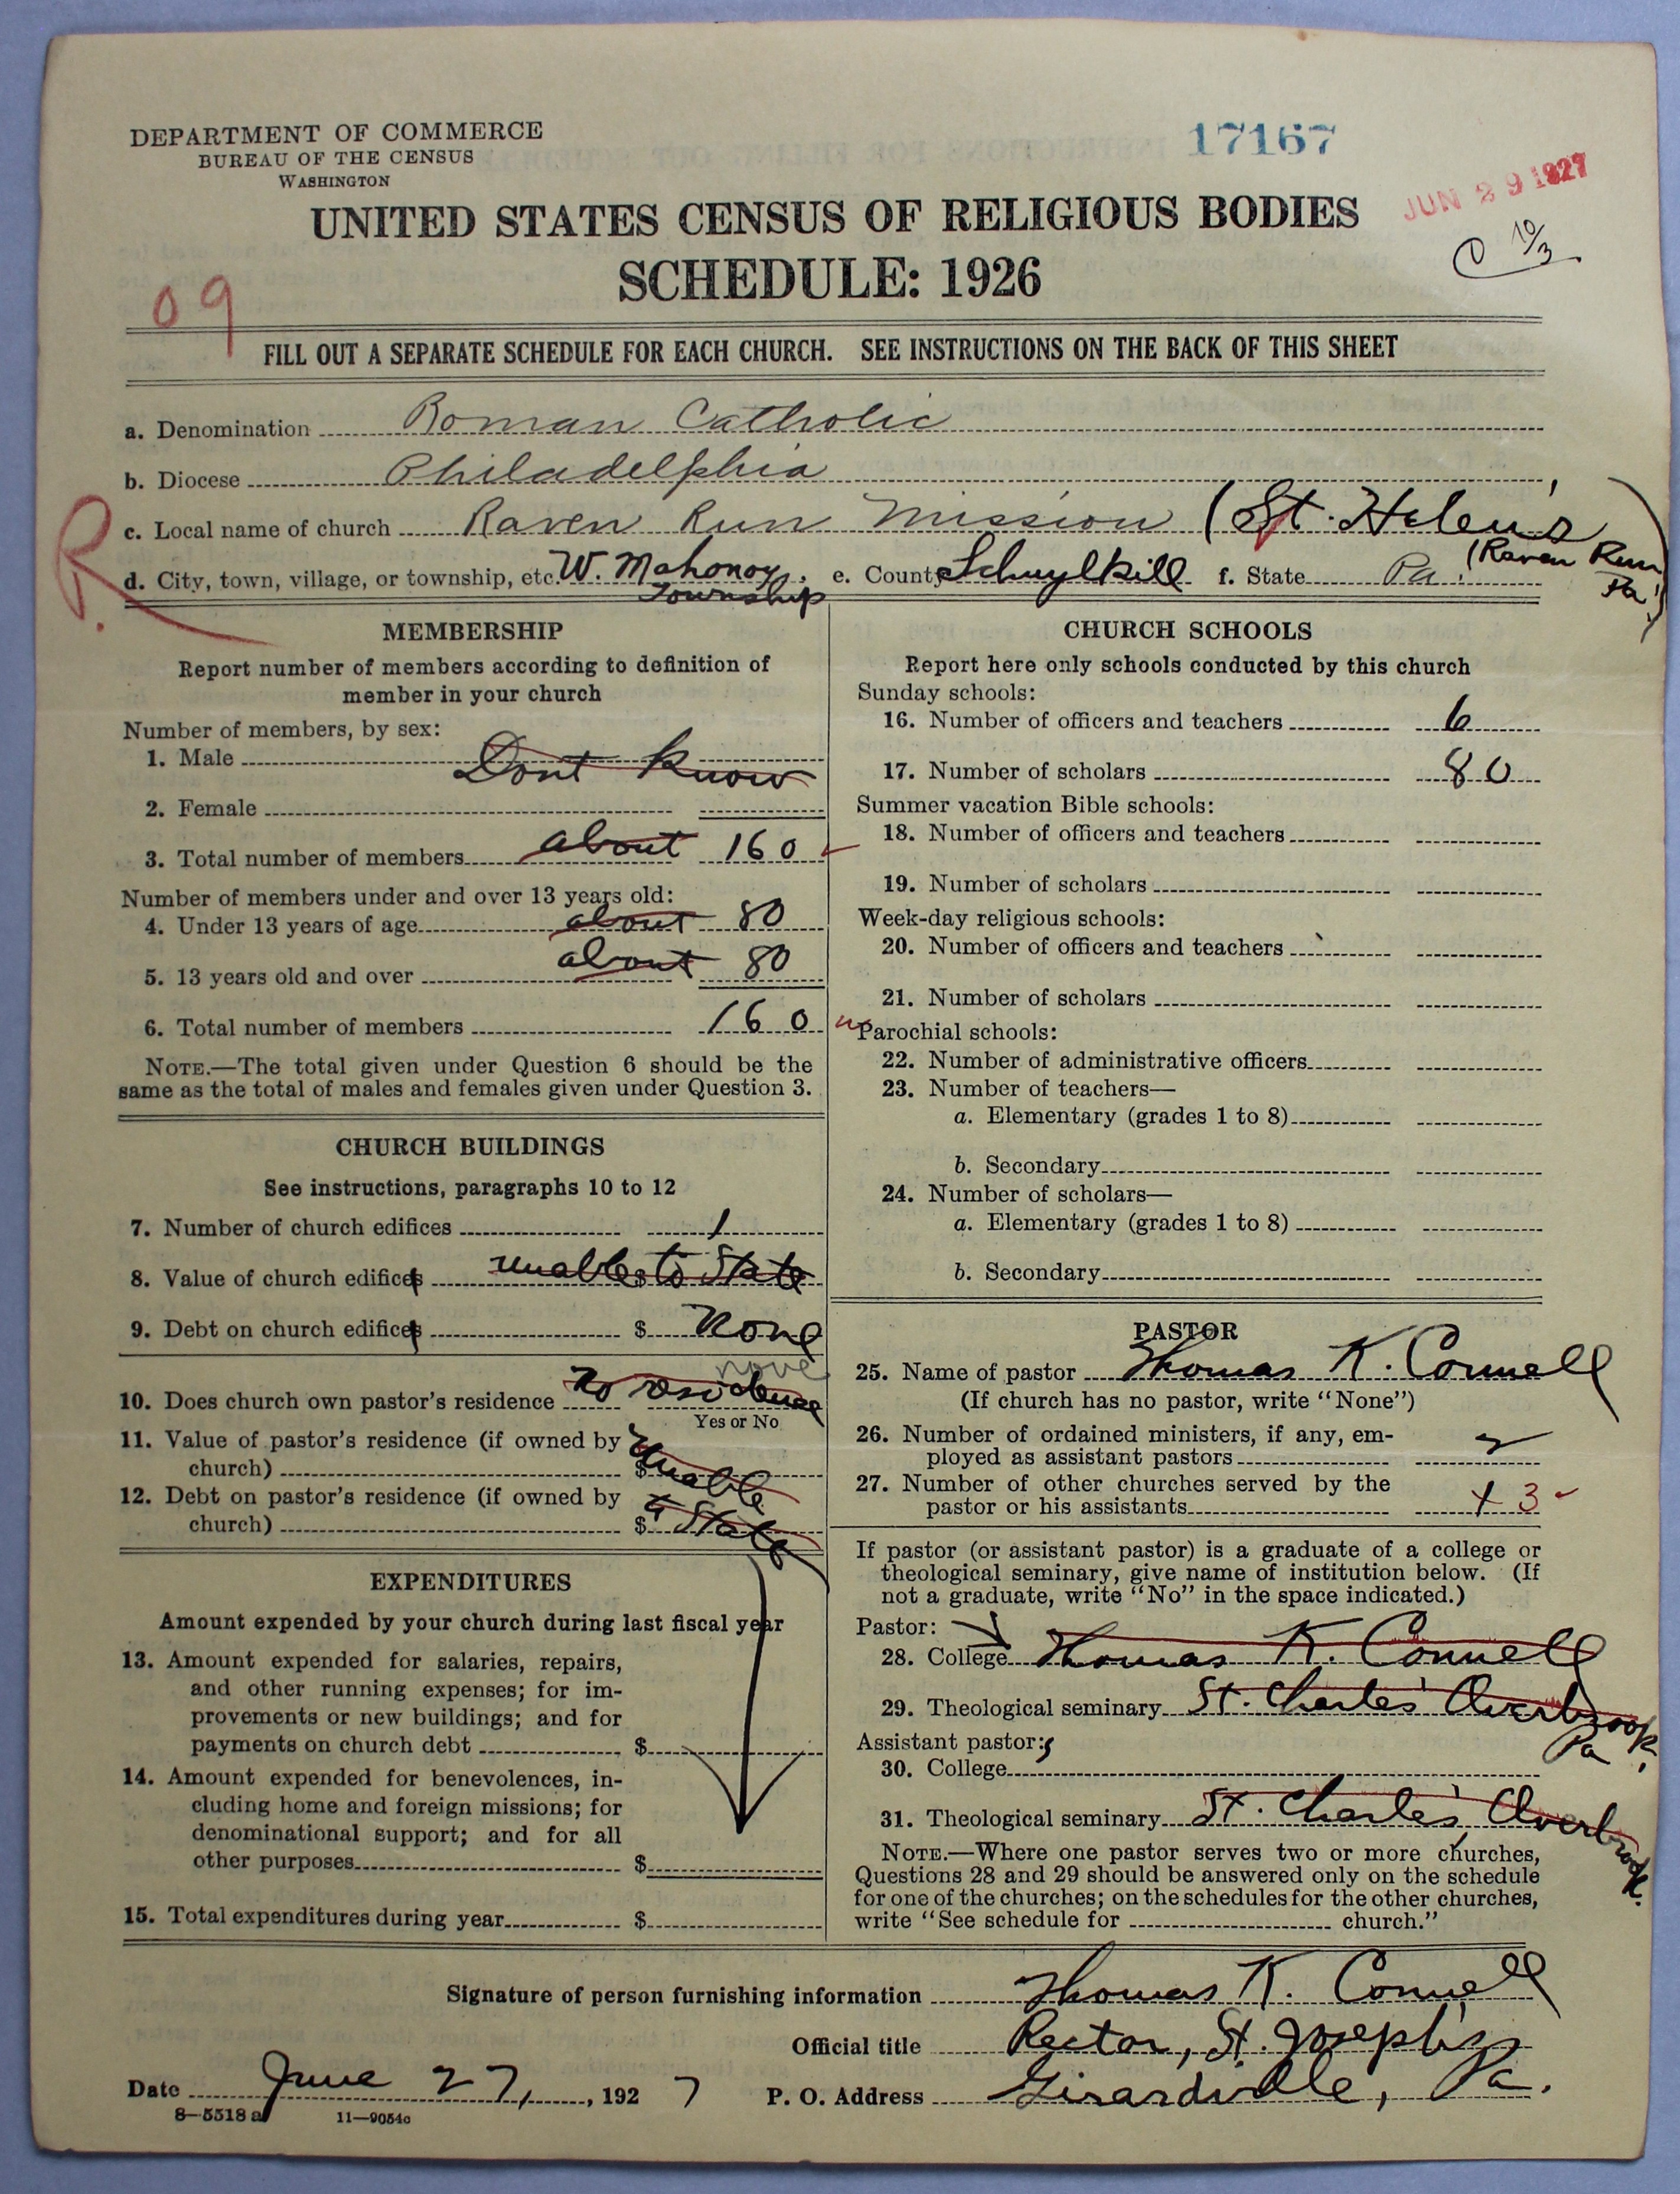 DEPARTMENT OF COMMERCE
BUREAU OF THE CENSUS
WASHINGTON
17167
JUN 29 1927
C 10/3
UNITED STATES CENSUS OF RELIGIOUS BODIES
SCHEDULE: 1926
09
FILL OUT A SEPARATE SCHEDULE FOR EACH CHURCH. SEE INSTRUCTIONS ON THE BACK OF THIS SHEET
a. Denomination Roman Catholic
b. Diocese Philadelphia
c. Local name of church Raven Run Mission (St. Helen's
(Raven Run Pa.)
R.
d. City, town, village, or township, etc. W. Mahonoy Township e. County Schuylkill f. State Pa.
MEMBERSHIP
Report number of members according to definition of
member in your church
Number of members, by sex:
1. Male Dont know
2. Female
3. Total number of members about 160
Number of members under and over 13 years old:
4. Under 13 years of age about 80
5. 13 years old and over about 80
6. Total number of members 160
NOTE.—The total given under Question 6 should be the
same as the total of males and females given under Question 3.
CHURCH BUILDINGS
See instructions, paragraphs 10 to 12
7. Number of church edifices 1
8. Value of church edifices $ unable to State
9. Debt on church edifices $ None
none
10. Does church own pastor's residence no residence
Yes or No
11. Value of pastor's residence (if owned by
church) $ Unable
12. Debt on pastor's residence (if owned by
church) $ to State
EXPENDITURES
Amount expended by your church during last fiscal year
13. Amount expended for salaries, repairs,
and other running expenses; for im-
provements or new buildings; and for
payments on church debt $
14. Amount expended for benevolences, in-
cluding home and foreign missions; for
denominational support; and for all
other purposes $
15. Total expenditures during year $
CHURCH SCHOOLS
Report here only schools conducted by this church
Sunday schools:
16. Number of officers and teachers 6
17. Number of scholars 80
Summer vacation Bible schools:
18. Number of officers and teachers
19. Number of scholars
Week-day religious schools:
20. Number of officers and teachers
21. Number of scholars
Parochial schools:
22. Number of administrative officers
23. Number of teachers—
a. Elementary (grades 1 to 8)
b. Secondary
24. Number of scholars—
a. Elementary (grades 1 to 8)
b. Secondary
PASTOR
25. Name of pastor Thomas K. Connell
(If church has no pastor, write "None")
26. Number of ordained ministers, if any, em-
ployed as assistant pastors 2
27. Number of other churches served by the
pastor or his assistants 3
If pastor (or assistant pastor) is a graduate of a college or
theological seminary, give name of institution below. (If
not a graduate, write "No" in the space indicated.)
Pastor:
28. College Thomas K. Connell
29. Theological seminary St. Charles Overbrook, Pa.
Assistant pastor:s
30. College
31. Theological seminary St. Charles, Overbrook.
NOTE.—Where one pastor serves two or more churches,
Questions 28 and 29 should be answered only on the schedule
for one of the churches; on the schedules for the other churches,
write "See schedule for church."
Signature of person furnishing information Thomas K. Connell
Official title Rector, St. Joseph's
Date June 27, 1927 P. O. Address Girardville, Pa.
8—5518 a 11—9054c